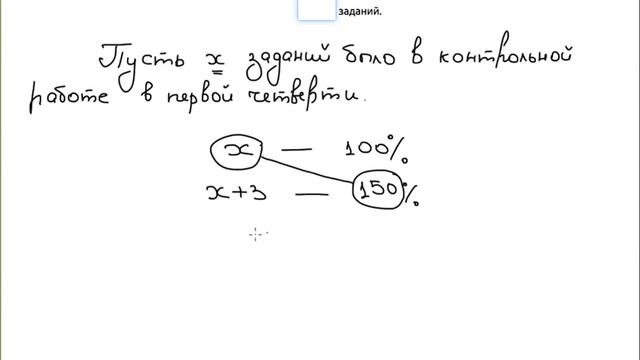 заданий.
Пусть x заданий было в контрольной
работе в первой четверти.
x — 100%
x+3 — 150%